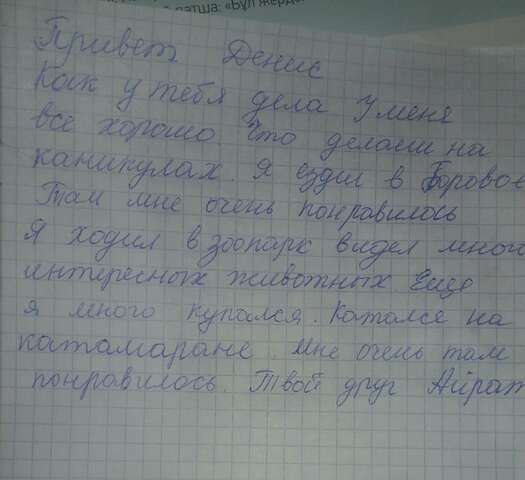 патша: «Бұл жерд
Привет Денис
Как у тебя дела У меня
все хорошо. Что делали на
каникулах. Я ездил в Боровое
Там мне очень понравилось
Я ходил в зоопарк видел много
интересных животных. Еще
я много купался. Катался на
катамаране. Мне очень там
понравилось. Твой друг Айрат